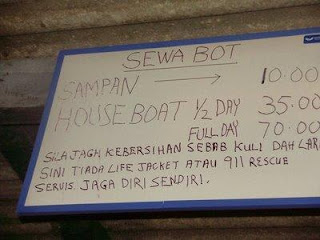 SEWA BOT
SAMPAN → 10.00
HOUSE BOAT 1/2 DAY 35.00
FULL DAY 70.00
SILA JAGA KEBERSIHAN SEBAB KULI DAH LARI
SINI TIADA LIFE JACKET ATAU 911 RESCUE
SERVIS. JAGA DIRI SENDIRI.